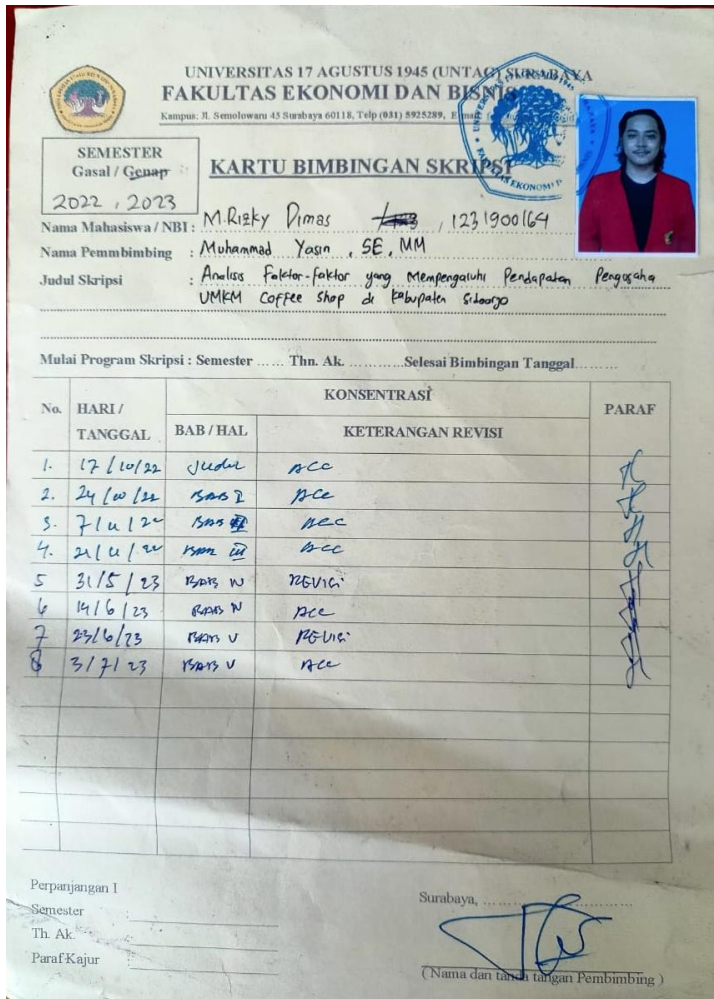 UNIVERSITAS 17 AGUSTUS 1945 (UNTAG) SURABAYA
FAKULTAS EKONOMI DAN BISNIS
Kampus: Jl. Semolowaru 45 Surabaya 60118, Telp (031) 5925289,
SEMESTER
Gasal / Genap
2022, 2023
KARTU BIMBINGAN SKRIPSI
Nama Mahasiswa / NBI : M.Rizky Dimas , 1231900164
Nama Pemmbimbing : Muhammad Yasin, SE, MM
Judul Skripsi : Analisis Faktor-faktor yang Mempengaruhi Pendapatan Pengusaha
UMKM Coffee Shop di Kabupaten Sidoarjo
Mulai Program Skripsi : Semester ...... Thn. Ak. ............Selesai Bimbingan Tanggal.........
No. HARI / TANGGAL KONSENTRASI PARAF
BAB / HAL KETERANGAN REVISI
1. 17/10/22 Judul ACC
2. 24/10/22 BAB I ACC
3. 7/11/22 BAB II ACC
4. 21/11/22 BAB III ACC
5 31/5/23 BAB IV REVISI
6 14/6/23 BAB IV ACC
7 23/6/23 BAB V REVISI
8 3/7/23 BAB V ACC
Perpanjangan I
Semester :
Th. Ak. :
Paraf Kajur :
Surabaya, ..............................
( Nama dan tanda tangan Pembimbing )